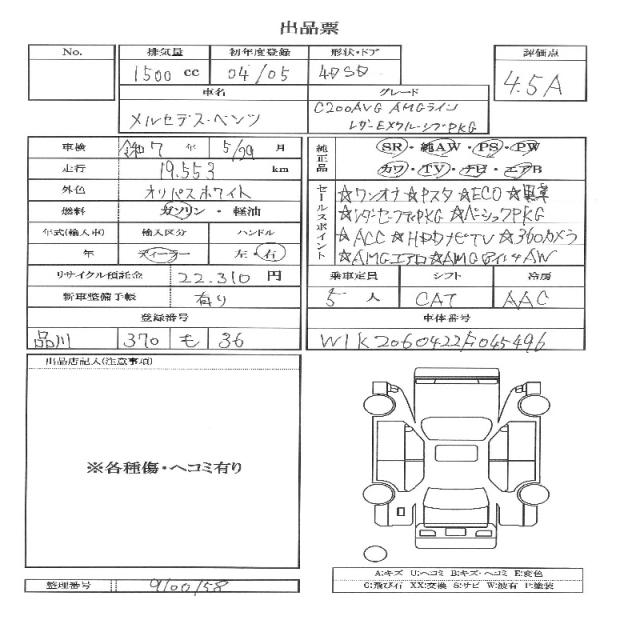 出品票
No. 排気量 初年度登録 形状・ドア 評価点
1500 cc 04/05 4DSD 4.5A
車名 グレード
メルセデス・ベンツ C200AVG AMGライン
レザーEXクルーシブPKG
車検 令和7年 5/29 月
走行 19.553 km
外色 オリパスホワイト
燃料 ガソリン ・ 軽油
年式(輸入車) 輸入区分 ハンドル
年 ディーラー 左・右
リサイクル預託金 22.310 円
新車整備手帳 有り
登録番号
品川 370 も 36
純正品 SR・純AW・PS・PW
カワ・TV・ナビ・エアB
セールスポイント
☆ワンオナ☆Pスタ☆ECO☆黒革
☆レーダーセーフティPKG☆ベーシックPKG
☆ACC☆HDDナビTV☆360カメラ
☆AMGエアロ☆AMG AW
乗車定員 シフト 冷房
5 人 CAT AAC
車体番号
W1K2060422F045496
出品店記入(注意事項)
※各種傷・ヘコミ有り
整理番号 9/00/58
A:キズ U:ヘコミ B:キズ・ヘコミ E:変色
G:飛び石 XX:交換 S:サビ W:波有 P:塗装